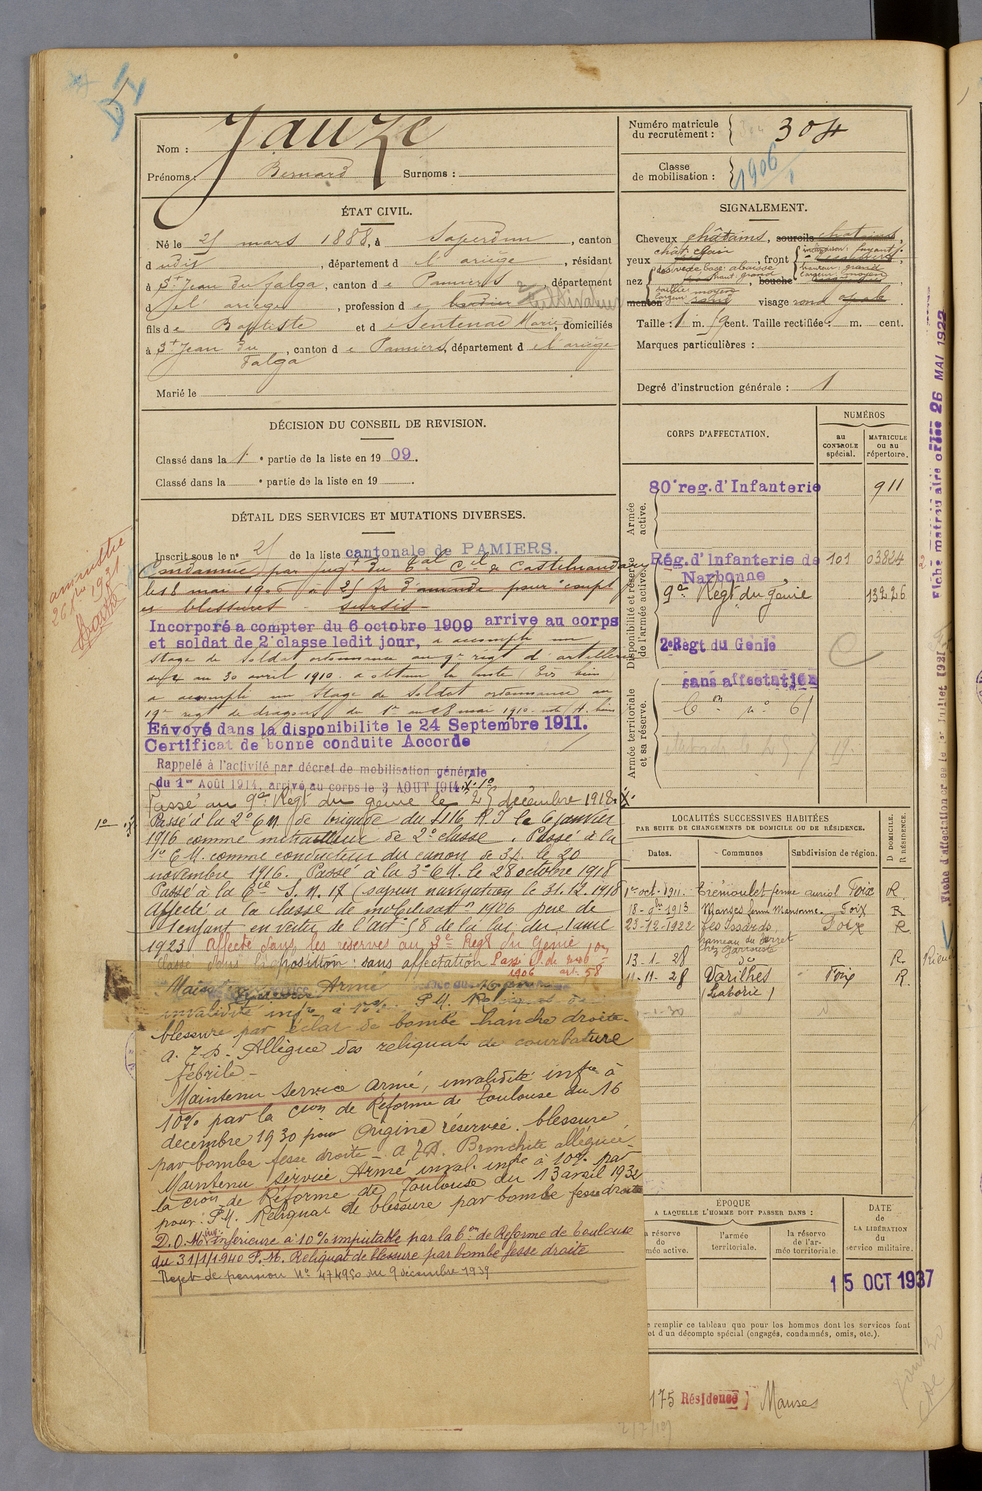 Nom : Jauze
Prénoms : Bernard Surnoms :
Numéro matricule du recrutement : 304
Classe de mobilisation : 1906
ÉTAT CIVIL.
Né le 25 mars 1888, à Saverdun, canton
d udit, département d e l'ariège, résidant
à St Jean du falga, canton d e Pamiers, département
d e l'ariège, profession d e Cultivateur
fils d e Baptiste et d e Sentenac Marie, domiciliés
à St Jean du Falga, canton d e Pamiers, département d e l'ariège
Marié le
SIGNALEMENT.
Cheveux châtains, sourcils châtains,
yeux chât. clair, front
nez, bouche
menton, visage rond ovale
Taille : 1 m. cent. Taille rectifiée : m. cent.
Marques particulières :
Degré d'instruction générale : 1
DÉCISION DU CONSEIL DE REVISION.
Classé dans la 1e partie de la liste en 1909.
Classé dans la e partie de la liste en 19 .
DÉTAIL DES SERVICES ET MUTATIONS DIVERSES.
Inscrit sous le n° 25 de la liste cantonale de PAMIERS.
Condamné par jugt du tal Cel de Castelnaudary
le 8 mai 190 à 25 fr d'amende pour coups
et blessures - sursis -
amnistie
Incorporé a compter du 6 octobre 1909 arrive au corps
et soldat de 2e classe ledit jour, a accompli un
stage de soldat ordonnance au 9e rigt d'artillerie
au 30 avril 1910. a obtenu la note (Très bien)
a accompli un Stage de soldat ordonnance au
19e rigt de dragons du 1er au mai 1910. note
Envoyé dans la disponibilite le 24 Septembre 1911.
Certificat de bonne conduite Accorde
Rappelé à l'activité par décret de mobilisation générale
du 1er Août 1914, arrivé au corps le 3 AOUT 1914
Passé au 9e Regt du génie le 25 décembre 1918.
Passé à la 2e Cn de brigade du 116 R.I le 6 janvier
1916 comme mitrailleur de 2e classe. Passé à la
1e C.M. comme conducteur du canon de 37. le 20
novembre 1916. Passé à la 3e Cn. le 28 octobre 1918
Passé à la 6cie S.N.17 (sapeur navigation le 31.12.1918
Affecté à la classe de mobilisation 1906 père de
1 enfant en vertu de l'art 58 de la loi du 1 avril
1923 Affecté dans les réserves au 2e Regt du Génie
Classé sans proposition : sans affectation Passé cl. de mob 1906 art. 58
Maintenu service Armé
invalidité infre à 10% P.M. Reliquat de
blessure par éclat de bombe hanche droite
a. 7.D. Allègue des reliquat de courbature
fébrile -
Maintenu service armé, invalidité infre à
10% par la cion de Réforme de Toulouse du 16
décembre 1930 pour Origine réservée. blessure
par bombe fesse droite - a 7.D. Bronchite alléguée.
Maintenu service Armé inval. infre à 10% par
la cion de Réforme de Toulouse du 13 avril 1932
pour : P.M. Reliquat de blessure par bombe fesse droite
D.O.M. inv. inférieure à 10% imputable par la Con de Réforme de Toulouse
du 31/1/1940 P.M. Reliquat de blessure par bombe fesse droite
Rejet de pension N° 474950 du 9 décembre 1939
CORPS D'AFFECTATION.
NUMÉROS
au CONTROLE spécial.
MATRICULE ou au répertoire.
Armée active.
80e reg. d'Infanterie 911
Disponibilité et réserve de l'armée active.
Rég. d'Infanterie de Narbonne 101 03824
9e Regt du génie 13226
2e Regt du Génie
Armée territoriale et sa réserve.
sans affectation
LOCALITÉS SUCCESSIVES HABITÉES
PAR SUITE DE CHANGEMENTS DE DOMICILE OU DE RÉSIDENCE.
Dates. Communes Subdivision de région. D DOMICILE. R RÉSIDENCE.
1er oct. 1911. Trémoulet ferme auriol Foix R
18 - 9bre 1913 Manses ferme Mansonne Foix R
23-12-1922 Les Issards Foix R
hameau du Jarret
13-1-28 do R
11-11-28 Varilhes Foix R.
(Laborie)
ÉPOQUE
A LAQUELLE L'HOMME DOIT PASSER DANS :
la réserve de armée active.
l'armée territoriale.
la réserve de l'armée territoriale.
DATE de LA LIBÉRATION du service militaire.
15 OCT 1937
remplir ce tableau que pour les hommes dont les services font
et d'un décompte spécial (engagés, condamnés, omis, etc.).
175 Résidence } Manses
Fiche matriculaire 26 MAI 1922
Fiche d'affectation créée le 1er Juillet 1921